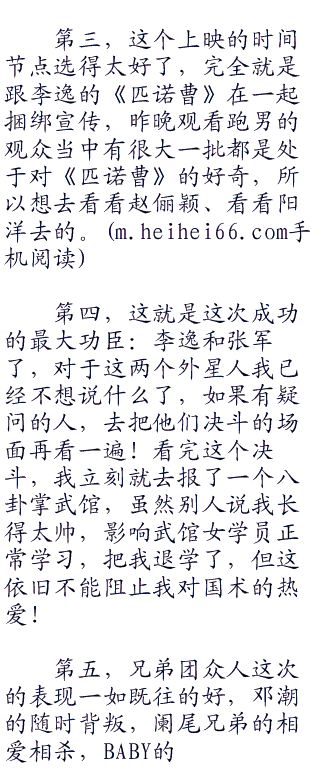 第三，这个上映的时间
节点选得太好了，完全就是
跟李逸的《匹诺曹》在一起
捆绑宣传，昨晚观看跑男的
观众当中有很大一批都是处
于对《匹诺曹》的好奇，所
以想去看看赵俪颖、看看阳
洋去的。(m.heihei66.com手
机阅读)
第四，这就是这次成功
的最大功臣：李逸和张军
了，对于这两个外星人我已
经不想说什么了，如果有疑
问的人，去把他们决斗的场
面再看一遍！看完这个决
斗，我立刻就去报了一个八
卦掌武馆，虽然别人说我长
得太帅，影响武馆女学员正
常学习，把我退学了，但这
依旧不能阻止我对国术的热
爱！
第五，兄弟团众人这次
的表现一如既往的好，邓潮
的随时背叛，阑尾兄弟的相
爱相杀，BABY的